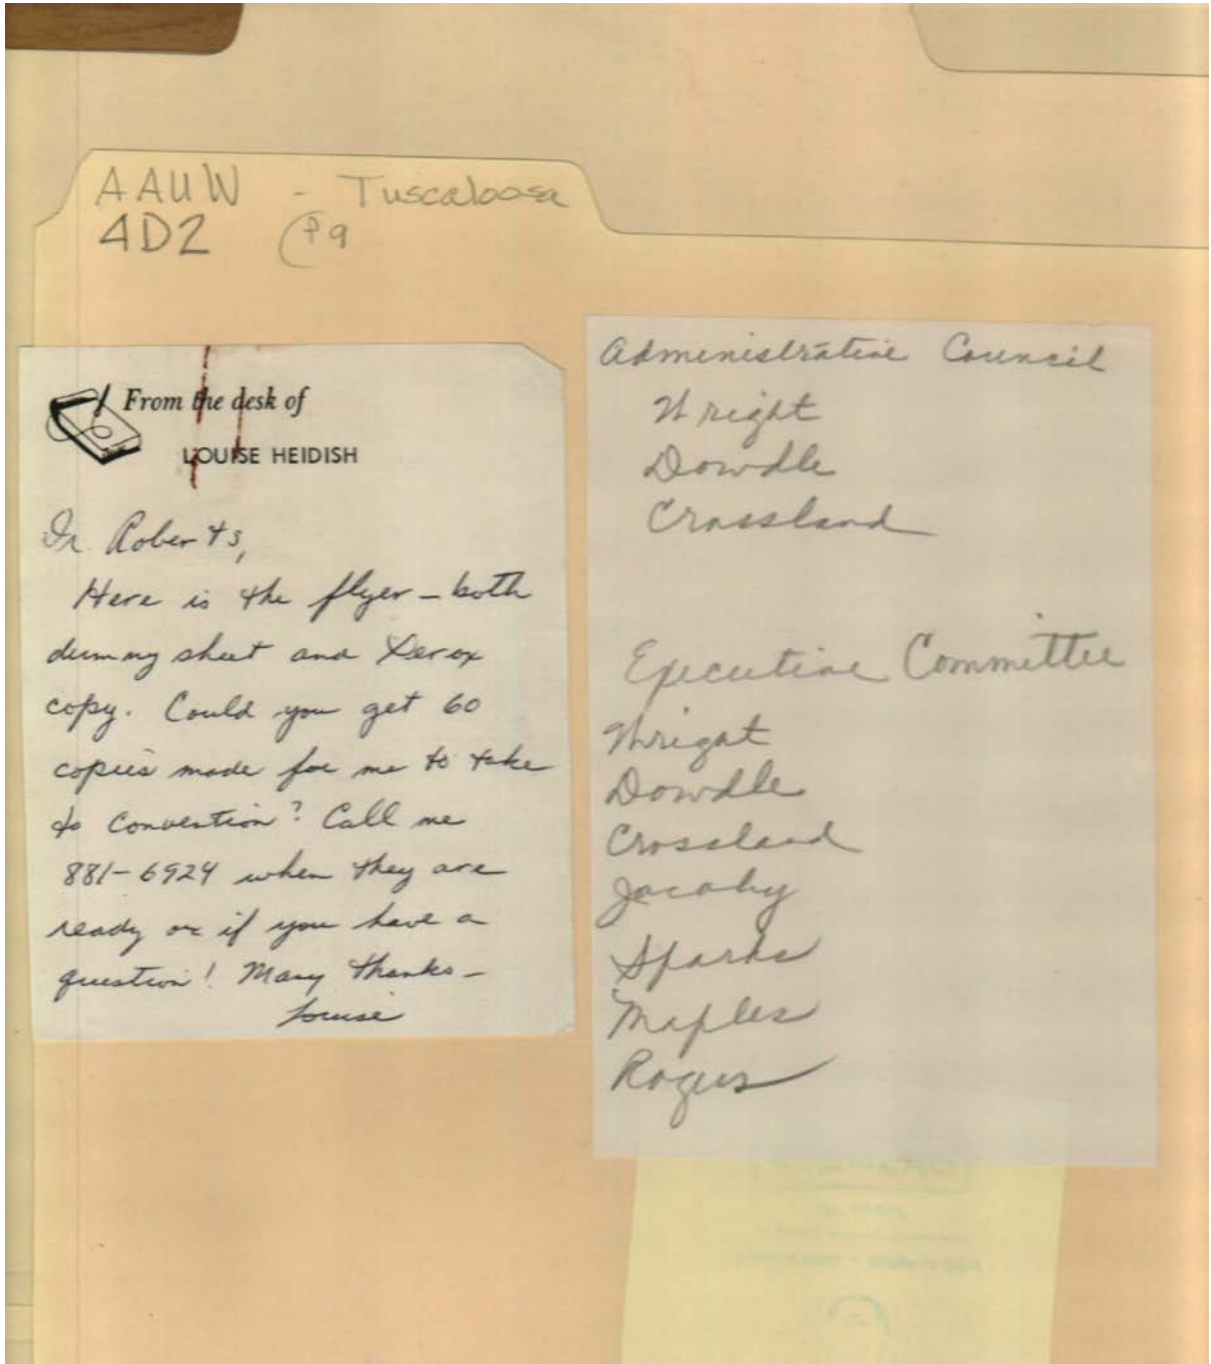 AAUW - Tuscaloosa
4D2 (P9
From the desk of
LOUISE HEIDISH
Dr Roberts,
Here is the flyer - both
dummy sheet and Xerox
copy. Could you get 60
copies made for me to take
to Convention? Call me
881-6924 when they are
ready or if you have a
question! Many thanks -
Louise
Administrative Council
Wright
Dowdle
Crossland
Executive Committee
Wright
Dowdle
Crossland
Jacoby
Sparks
Maples
Rogers